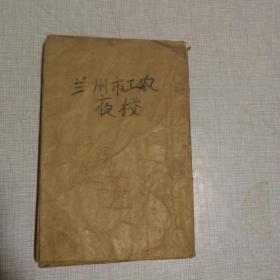 兰州市工农
夜校